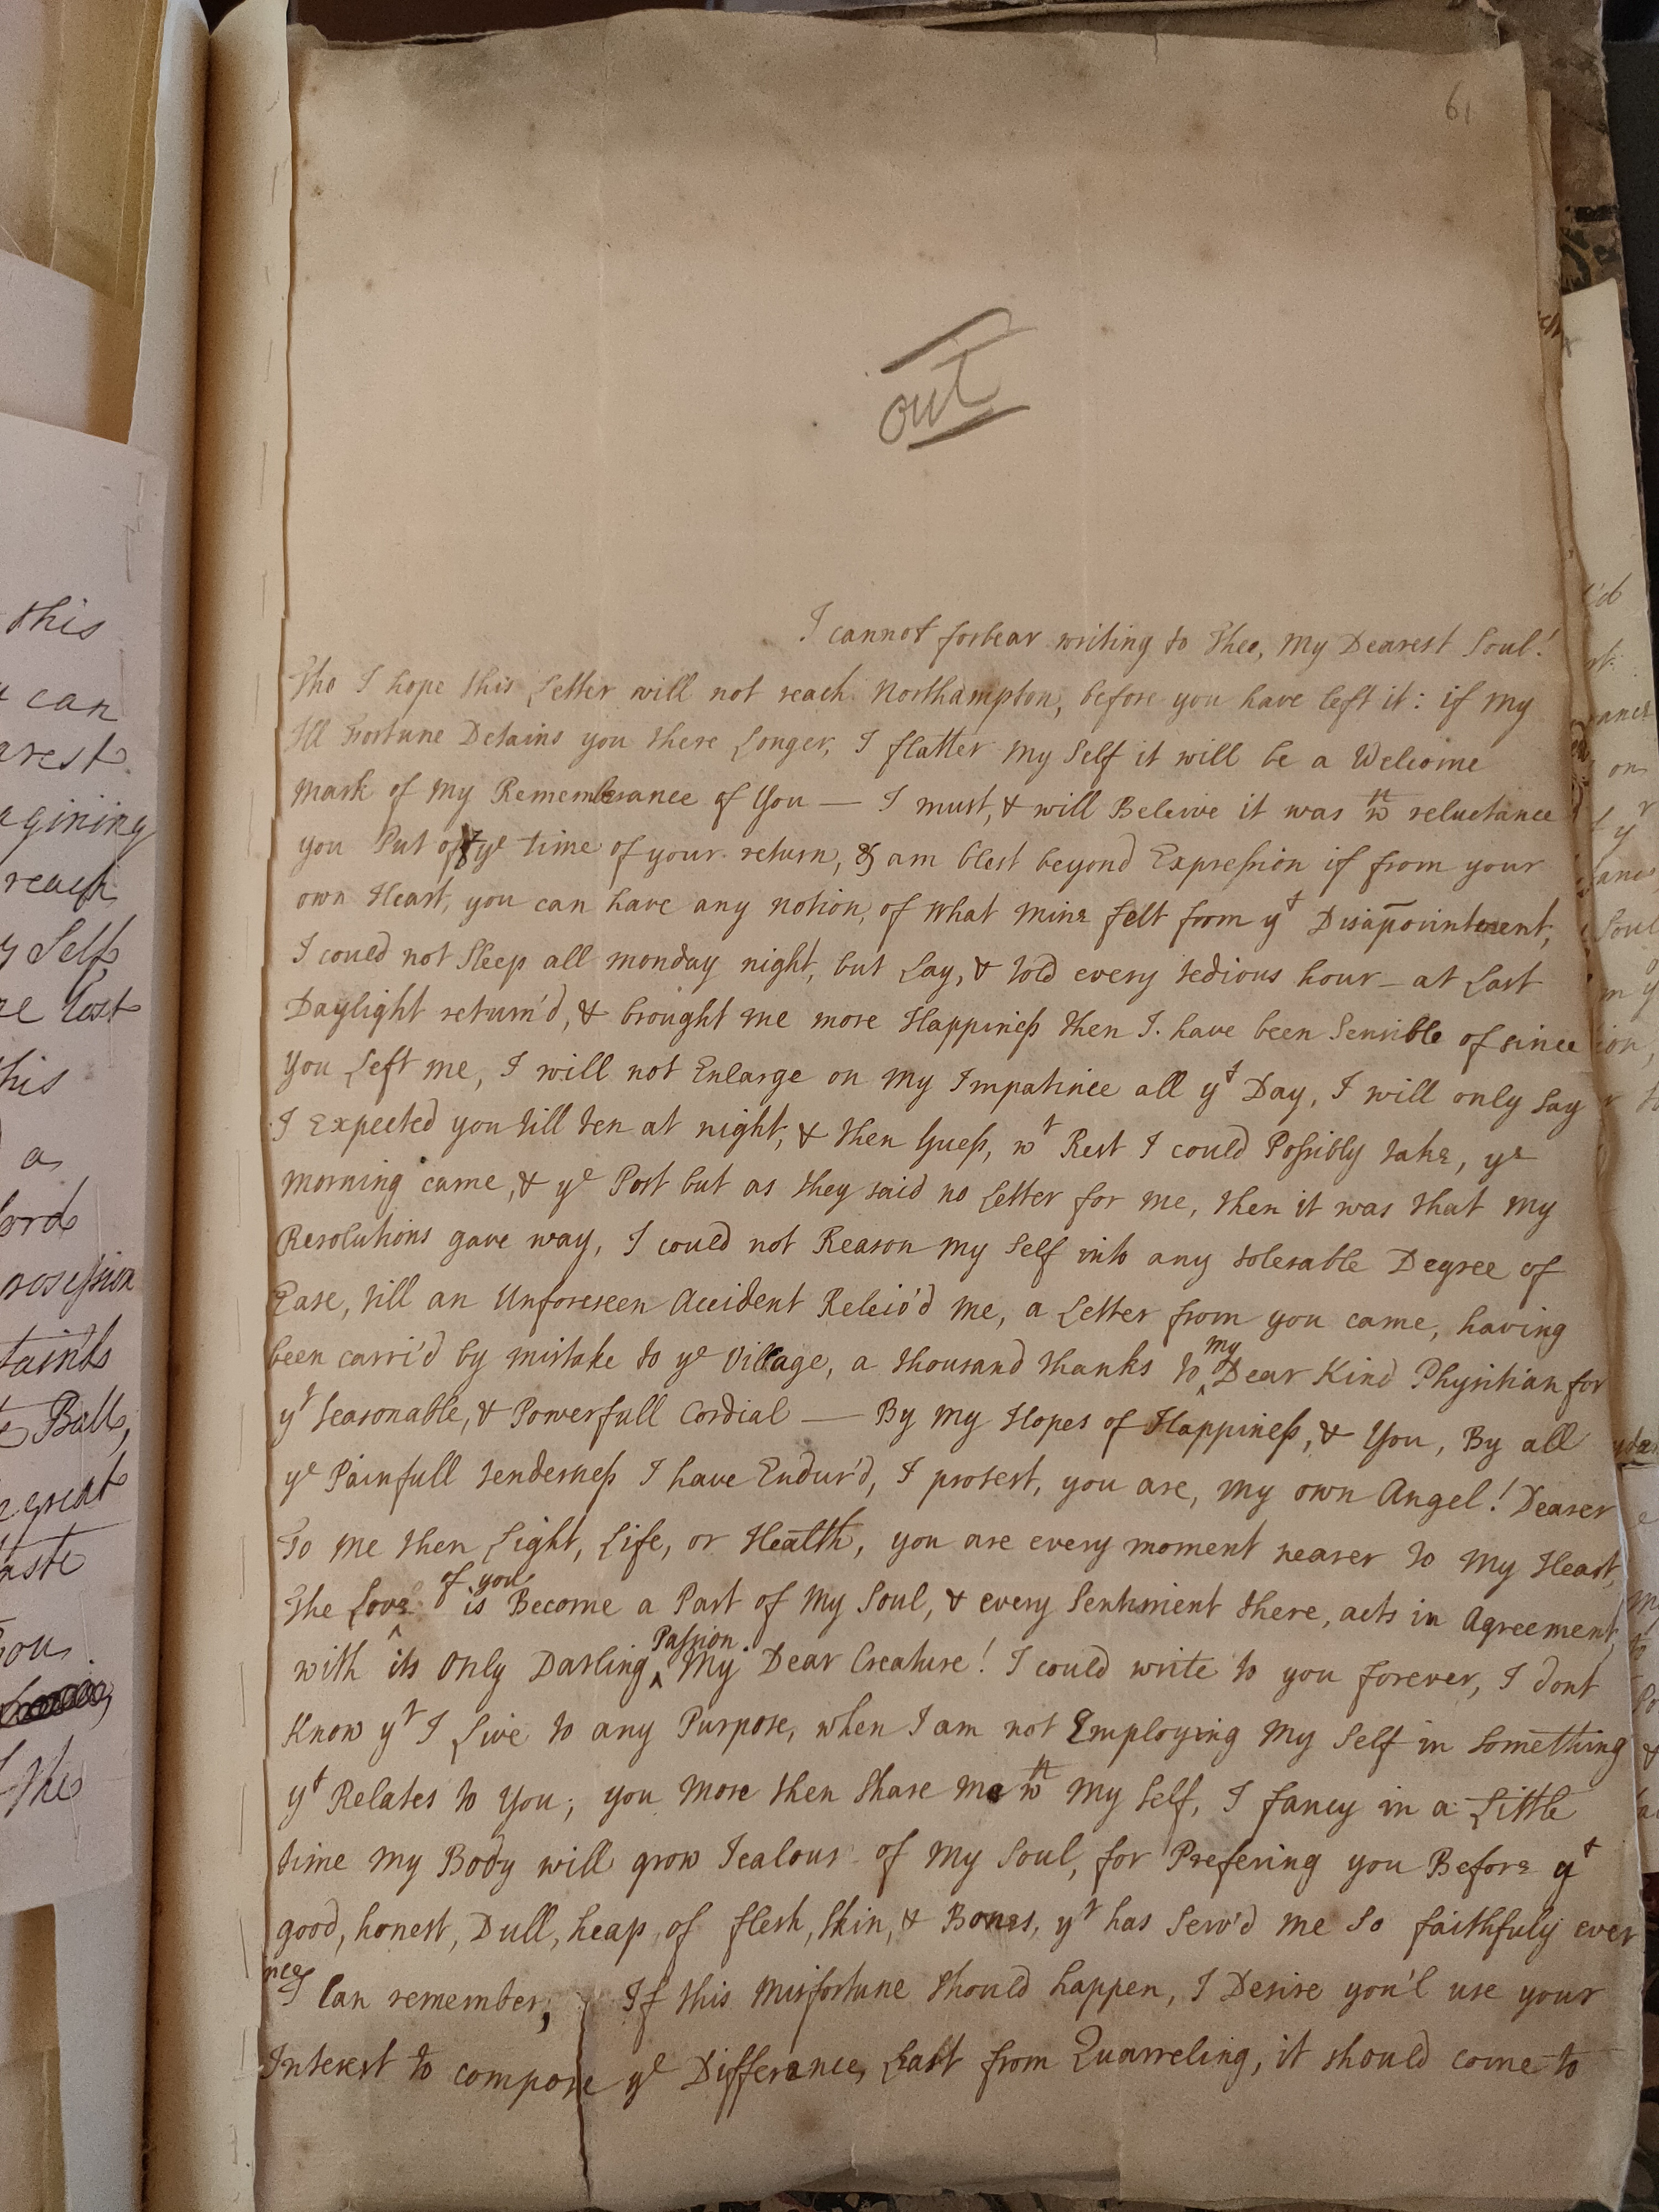 61
out
I cannot forbear writing to Thee, My Dearest Soul!
Tho I hope this Letter will not reach Northampton, before you have left it: if My
Ill Fortune Detains you there Longer, I flatter My Self it will be a Welcome
Mark of My Remembrance of You — I must, & will Beleive it was wth reluctance
you Put off ye time of your return, & am blest beyond Expression if from your
own Heart, you can have any notion, of what mine felt from yt Disapointment,
I could not Sleep all monday night, but Lay, & told every tedious hour — at Last
Daylight return'd, & brought me more Happiness then I have been Sensible of since
You Left me, I will not Enlarge on My Impatince all yt Day, I will only Say
I Expected you till ten at night, & then Guess, wt Rest I could Possibly take, ye
morning came, & ye Post but as they said no Letter for me, then it was that My
Resolutions gave way, I could not Reason My Self into any tolerable Degree of
Ease, till an Unforeseen Accident Releiv'd Me, a Letter from you came, having
been carri'd by mistake to ye Village, a thousand thanks to my Dear Kind Physitian for
yt Seasonable, & Powerfull Cordial — By My Hopes of Happiness, & You, By all
ye Painfull tenderness I have Endur'd, I protest, you are, My own Angel! Dearer
To Me then Light, Life, or Health, you are every moment nearer to My Heart,
The Love of you is Become a Part of My Soul, & every Sentiment there, acts in Agreement,
with its Only Darling Passion My Dear Creature! I could write to you forever, I dont
Know yt I Live to any Purpose, when I am not Employing My Self in Something
yt Relates to You; you More then Share Me wth My Self, I fancy in a Little
time My Body will grow Jealous of My Soul, for Prefering you Before yt
good, honest, Dull, heap, of flesh, Skin, & Bones, yt has Serv'd Me So faithfuly ever
nce I Can remember, If this Misfortune Should happen, I Desire you'l use your
Interest to compose ye Difference, Least from Quarreling, it should come to
this
can
arest
agining
reach
Self
lost
his
a
ord
Ball,
great
aste
ou.
the